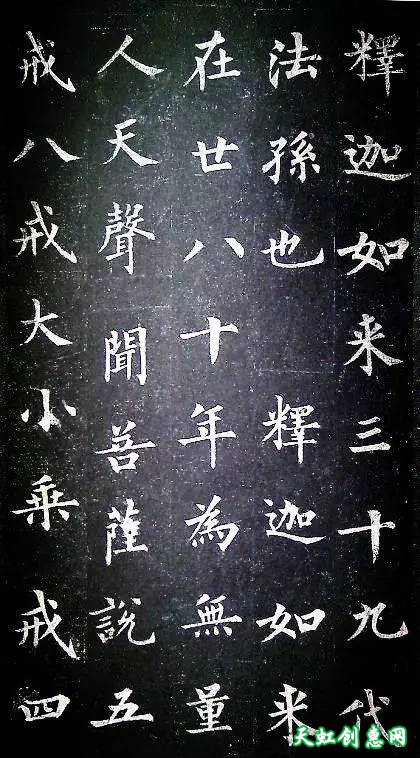 釋迦如来三十九代
法孫也釋迦如来
在廿八十年為無量
人天聲聞菩薩說五
戒八戒大小乘戒四
天虹创惠网